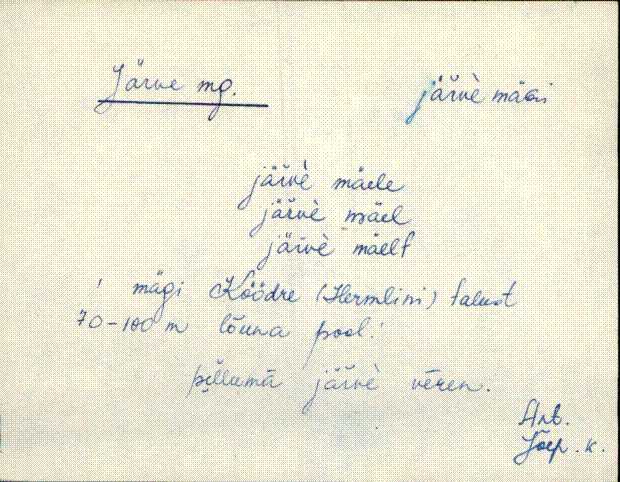 Järve mg. järvè mägi
järvè mäele
järvè mäel
järvè mäelt
mägi Köödre (Hermlini) talust
70-100 m lõuna pool.
põllumā järvè vēren.
Ant.
Jõep. k.